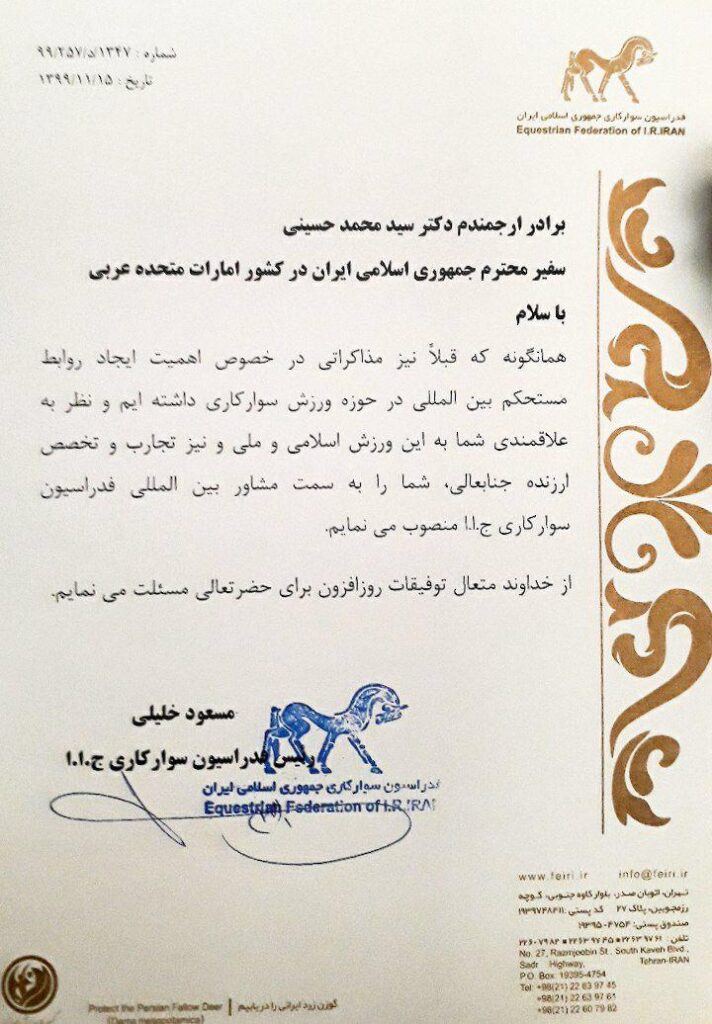 شماره : ۹۹/۲۵۷/د/۱۳۴۷
تاریخ : ۱۳۹۹/۱۱/۱۵
فدراسیون سوارکاری جمهوری اسلامی ایران
Equestrian Federation of I.R.IRAN
برادر ارجمندم دکتر سید محمد حسینی
سفیر محترم جمهوری اسلامی ایران در کشور امارات متحده عربی
با سلام
همانگونه که قبلاً نیز مذاکراتی در خصوص اهمیت ایجاد روابط
مستحکم بین المللی در حوزه ورزش سوارکاری داشته ایم و نظر به
علاقمندی شما به این ورزش اسلامی و ملی و نیز تجارب و تخصص
ارزنده جنابعالی، شما را به سمت مشاور بین المللی فدراسیون
سوارکاری ج.ا.ا منصوب می نمایم.
از خداوند متعال توفیقات روزافزون برای حضرتعالی مسئلت می نمایم.
مسعود خلیلی
رئیس فدراسیون سوارکاری ج.ا.ا
فدراسیون سوارکاری جمهوری اسلامی ایران
Equestrian Federation of I.R.IRAN
www.feiri.ir info@feiri.ir
تهران، اتوبان صدر، بلوار کاوه جنوبی، کوچه
رزمجوبین، پلاک ۲۷ کد پستی: ۱۹۳۹۷۴۸۴۱۱
صندوق پستی: ۴۷۵۴-۱۹۳۹۵
تلفن: ۲۲۶۳۹۷۶۱ ■ ۲۲۶۳۹۷۴۵ ■ ۲۲۶۰۷۹۸۲
No. 27, Razmjoobin St., South Kaveh Blvd.,
Sadr Highway, Tehran-IRAN
P.O. Box: 19395-4754
Tel: +98(21) 22 63 97 45
+98(21) 22 63 97 61
+98(21) 22 60 79 82
گوزن زرد ایرانی را دریابیم
Protect the Persian Fallow Deer
(Dama mesopotamica)